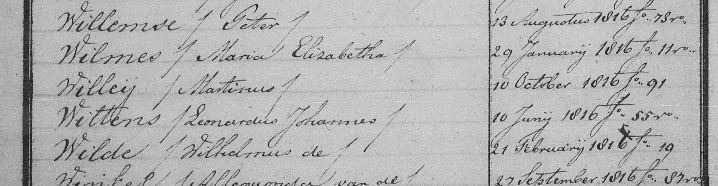 Willemse / Peter / 13 Augustus 1816 fo. 73 ro.
Wilmes / Maria Elizabetha / 29 Januarij 1816 fo. 11 ro.
Willeij / Martinus / 10 October 1816 fo. 91
Wittens / Leonardus Johannes / 10 Junij 1816 fo. 55 ro.
Wilde / Wilhelmus de / 21 Februarij 1816 fo. 19
Winkel / Allegonda van de / 27 September 1816 fo. 87 ro.